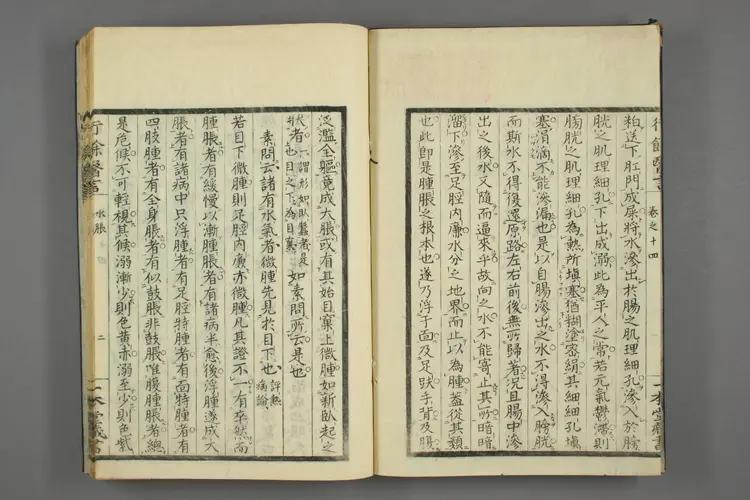 粕送下肛門成屎將水滲出於腸之肌理細孔滲入于膀
胱之肌理細孔下出成溺此為平人之常若元氣鬱滯則
腸膀胱之肌理細孔為熱所塡塞猶糊塗密絹其細細孔壅
塞涓滴不能滲漏也是以自腸滲出之水不得滲入膀胱
而斯水不得後還原路左右前後無所歸著況且腸中滲
出之後水又隨而逼來乎故向之水不能寄止其所暗暗
溜下滲至足脛內廉水分之地界而止以為腫蓋從其類
也此卽是腫脹之根本也遂乃浮于面及足趺手背及腹
卷之十四
一本堂藏書
泛濫全軀竟成大脹或有其始目窠上微腫如新臥起之
狀者如素問所云是也
素問云諸有水氣者微腫先見於目下也
評熱病論
若目下微腫則足脛內廉亦微腫凡其證不一有卒然而
腫脹者有緩慢以漸腫脹者有諸病半愈後浮腫遂成大
脹者有諸病中只浮腫者有足脛特腫者有面特腫者有
四肢腫者有全身脹者有似鼓脹非鼓脹唯腹腫脹者總
是危候不可輕視其候溺漸少則色黃赤溺至少則色紫
行餘醫言
水脹
二
一本堂藏書